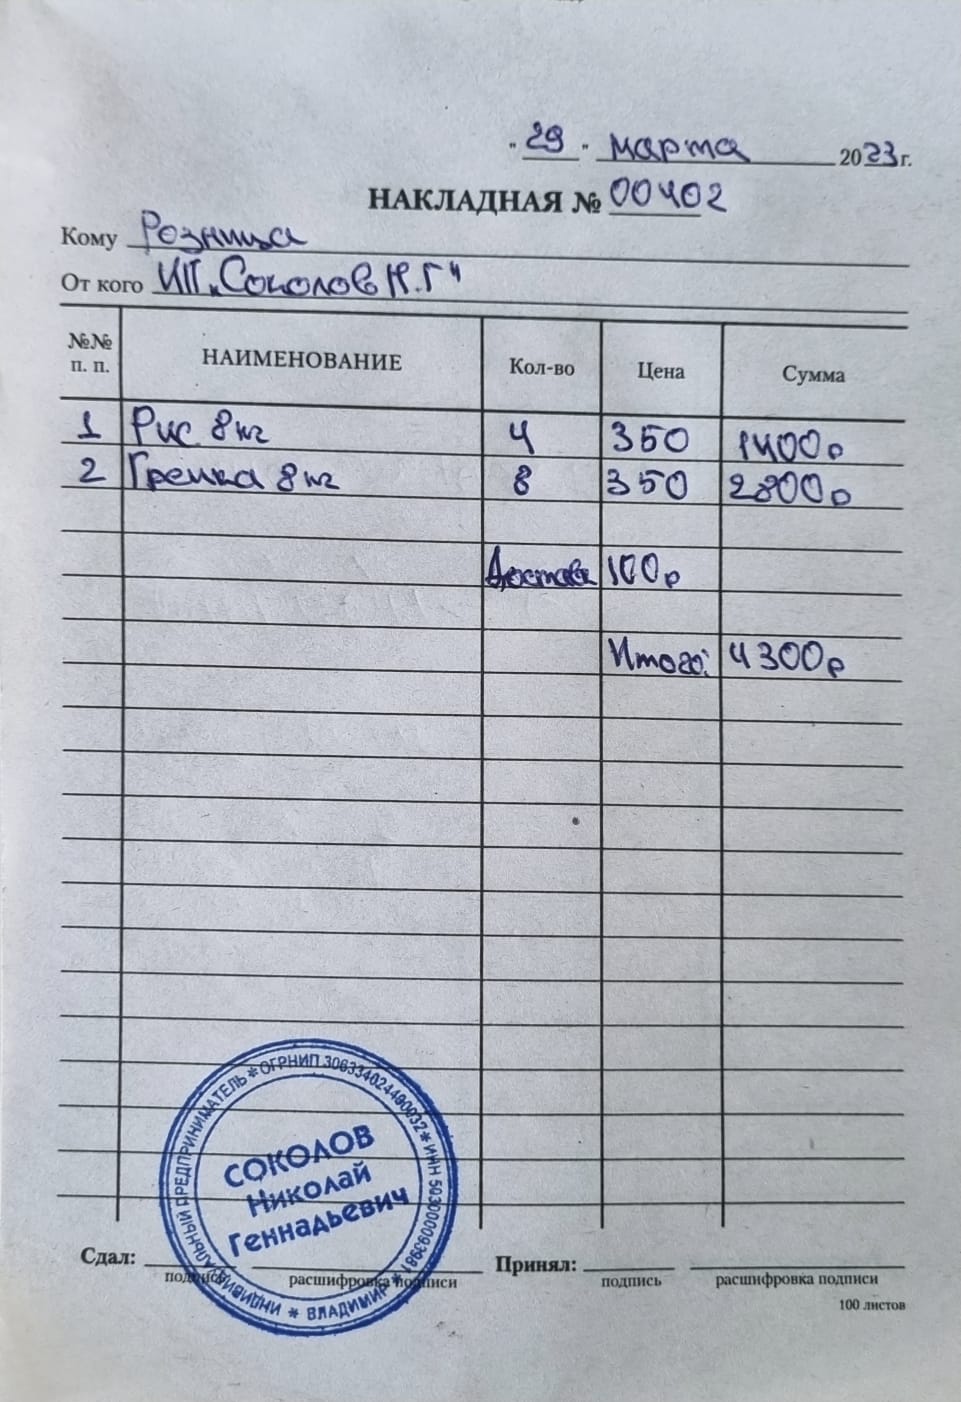 "29" марта 2023 г.
НАКЛАДНАЯ № 00402
Кому Розница
От кого ИП „Соколов Н.Г"
№№ п. п. НАИМЕНОВАНИЕ Кол-во Цена Сумма
1 Рис 8 кг 4 350 1400р
2 Гречка 8 кг 8 350 2800р
Доставка 100р
Итого: 4300р
ИНДИВИДУАЛЬНЫЙ ПРЕДПРИНИМАТЕЛЬ * ОГРНИП 306334024490032 * ИНН 503000093981 * ВЛАДИМИР *
СОКОЛОВ
Николай
Геннадьевич
Сдал: Принял:
подпись расшифровка подписи подпись расшифровка подписи
100 листов